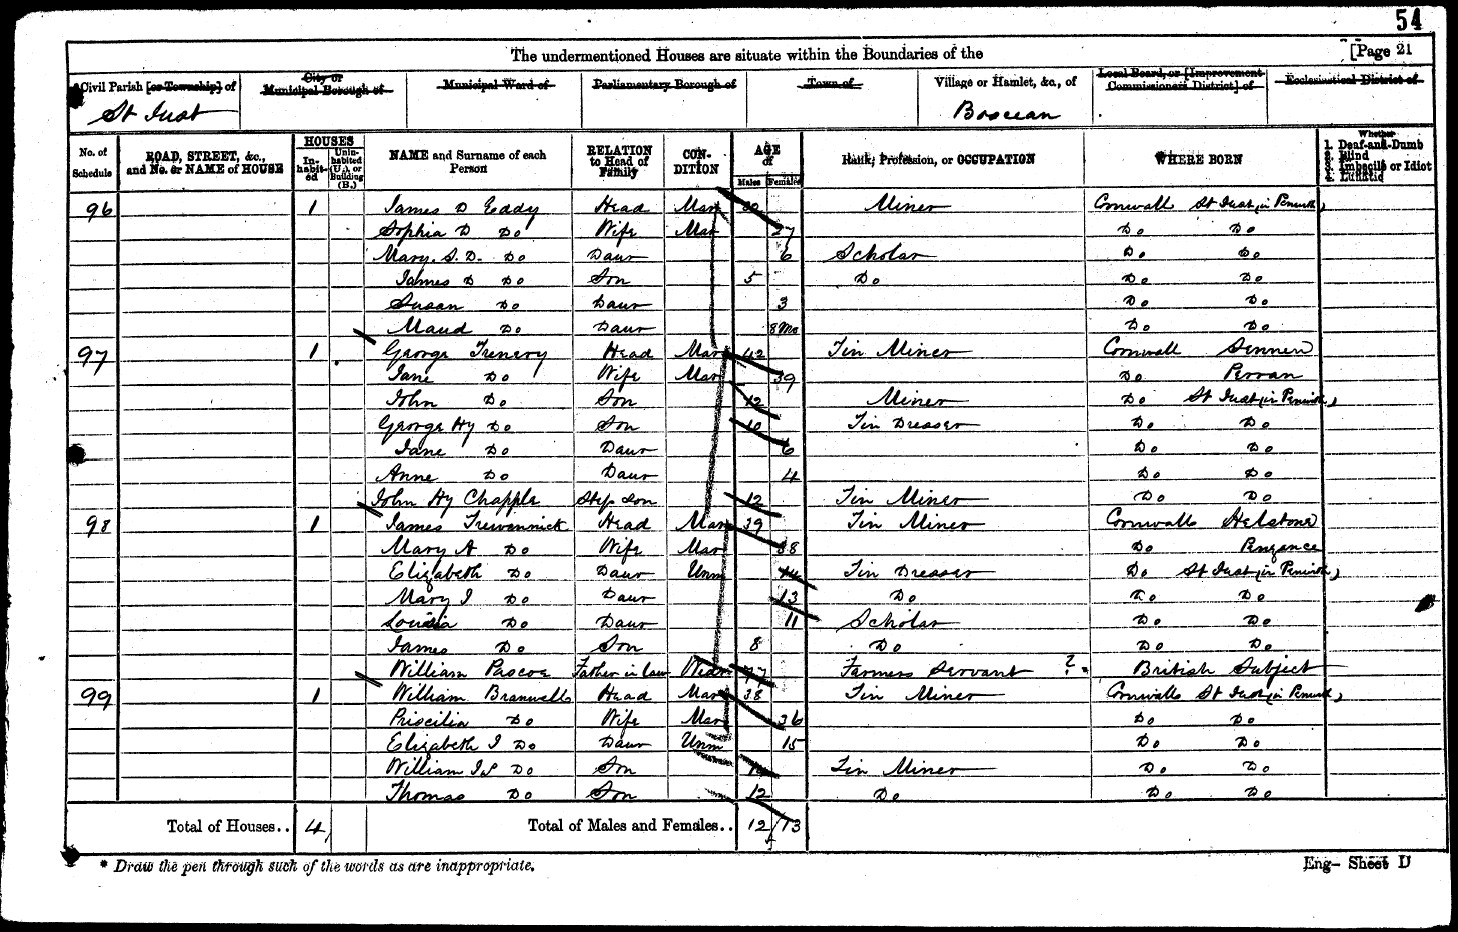 54
The undermentioned Houses are situate within the Boundaries of the [Page 21
Civil Parish [or Township] of City or Municipal Borough of Municipal Ward of Parliamentary Borough of Town of Village or Hamlet, &c., of Local Board, or [Improvement Commissioners District] of Ecclesiastical District of
St Just Boscean
No. of Schedule ROAD, STREET, &c., and No. or NAME of HOUSE HOUSES Inhabited Uninhabited (U.), or Building (B.) NAME and Surname of each Person RELATION to Head of Family CONDITION AGE of Males Females Rank, Profession, or OCCUPATION WHERE BORN Whether 1. Deaf-and-Dumb 2. Blind 3. Imbecile or Idiot 4. Lunatic
96 1 James D Eddy Head Mar Miner Cornwall St Just in Penwith
Sophia D Do Wife Mar 27 Do Do
Mary. S. D. Do Daur 6 Scholar Do Do
James D Do Son 5 Do Do Do
Susan Do Daur 3 Do Do
Maud Do Daur 8 Mo Do Do
97 1 George Trenery Head Mar 42 Tin Miner Cornwall Sennen
Jane Do Wife Mar 39 Do Perran
John Do Son 12 Miner Do St Just in Penwith
George Hy Do Son 10 Tin Dresser Do Do
Jane Do Daur 6 Do Do
Anne Do Daur 4 Do Do
John Hy Chapple Step Son 12 Tin Miner Do Do
98 1 James Trewennick Head Mar 39 Tin Miner Cornwall Helstone
Mary A Do Wife Mar 38 Do Penzance
Elizabeth Do Daur Unm 14 Tin Dresser Do St Just in Penwith
Mary J Do Daur 13 Do Do Do
Louisa Do Daur 11 Scholar Do Do
James Do Son 8 Do Do Do
William Pascoe Father in law Widr 77 Farmers Servant ? British Subject
99 1 William Branwell Head Mar 38 Tin Miner Cornwall St Just in Penwith
Priscilia Do Wife Mar 36 Do Do
Elizabeth J Do Daur Unm 15 Do Do
William Do Son Tin Miner Do Do
Thomas Do Son 12 Do Do Do
Total of Houses.. 4 Total of Males and Females.. 12 13
* Draw the pen through such of the words as are inappropriate. Eng- Sheet D